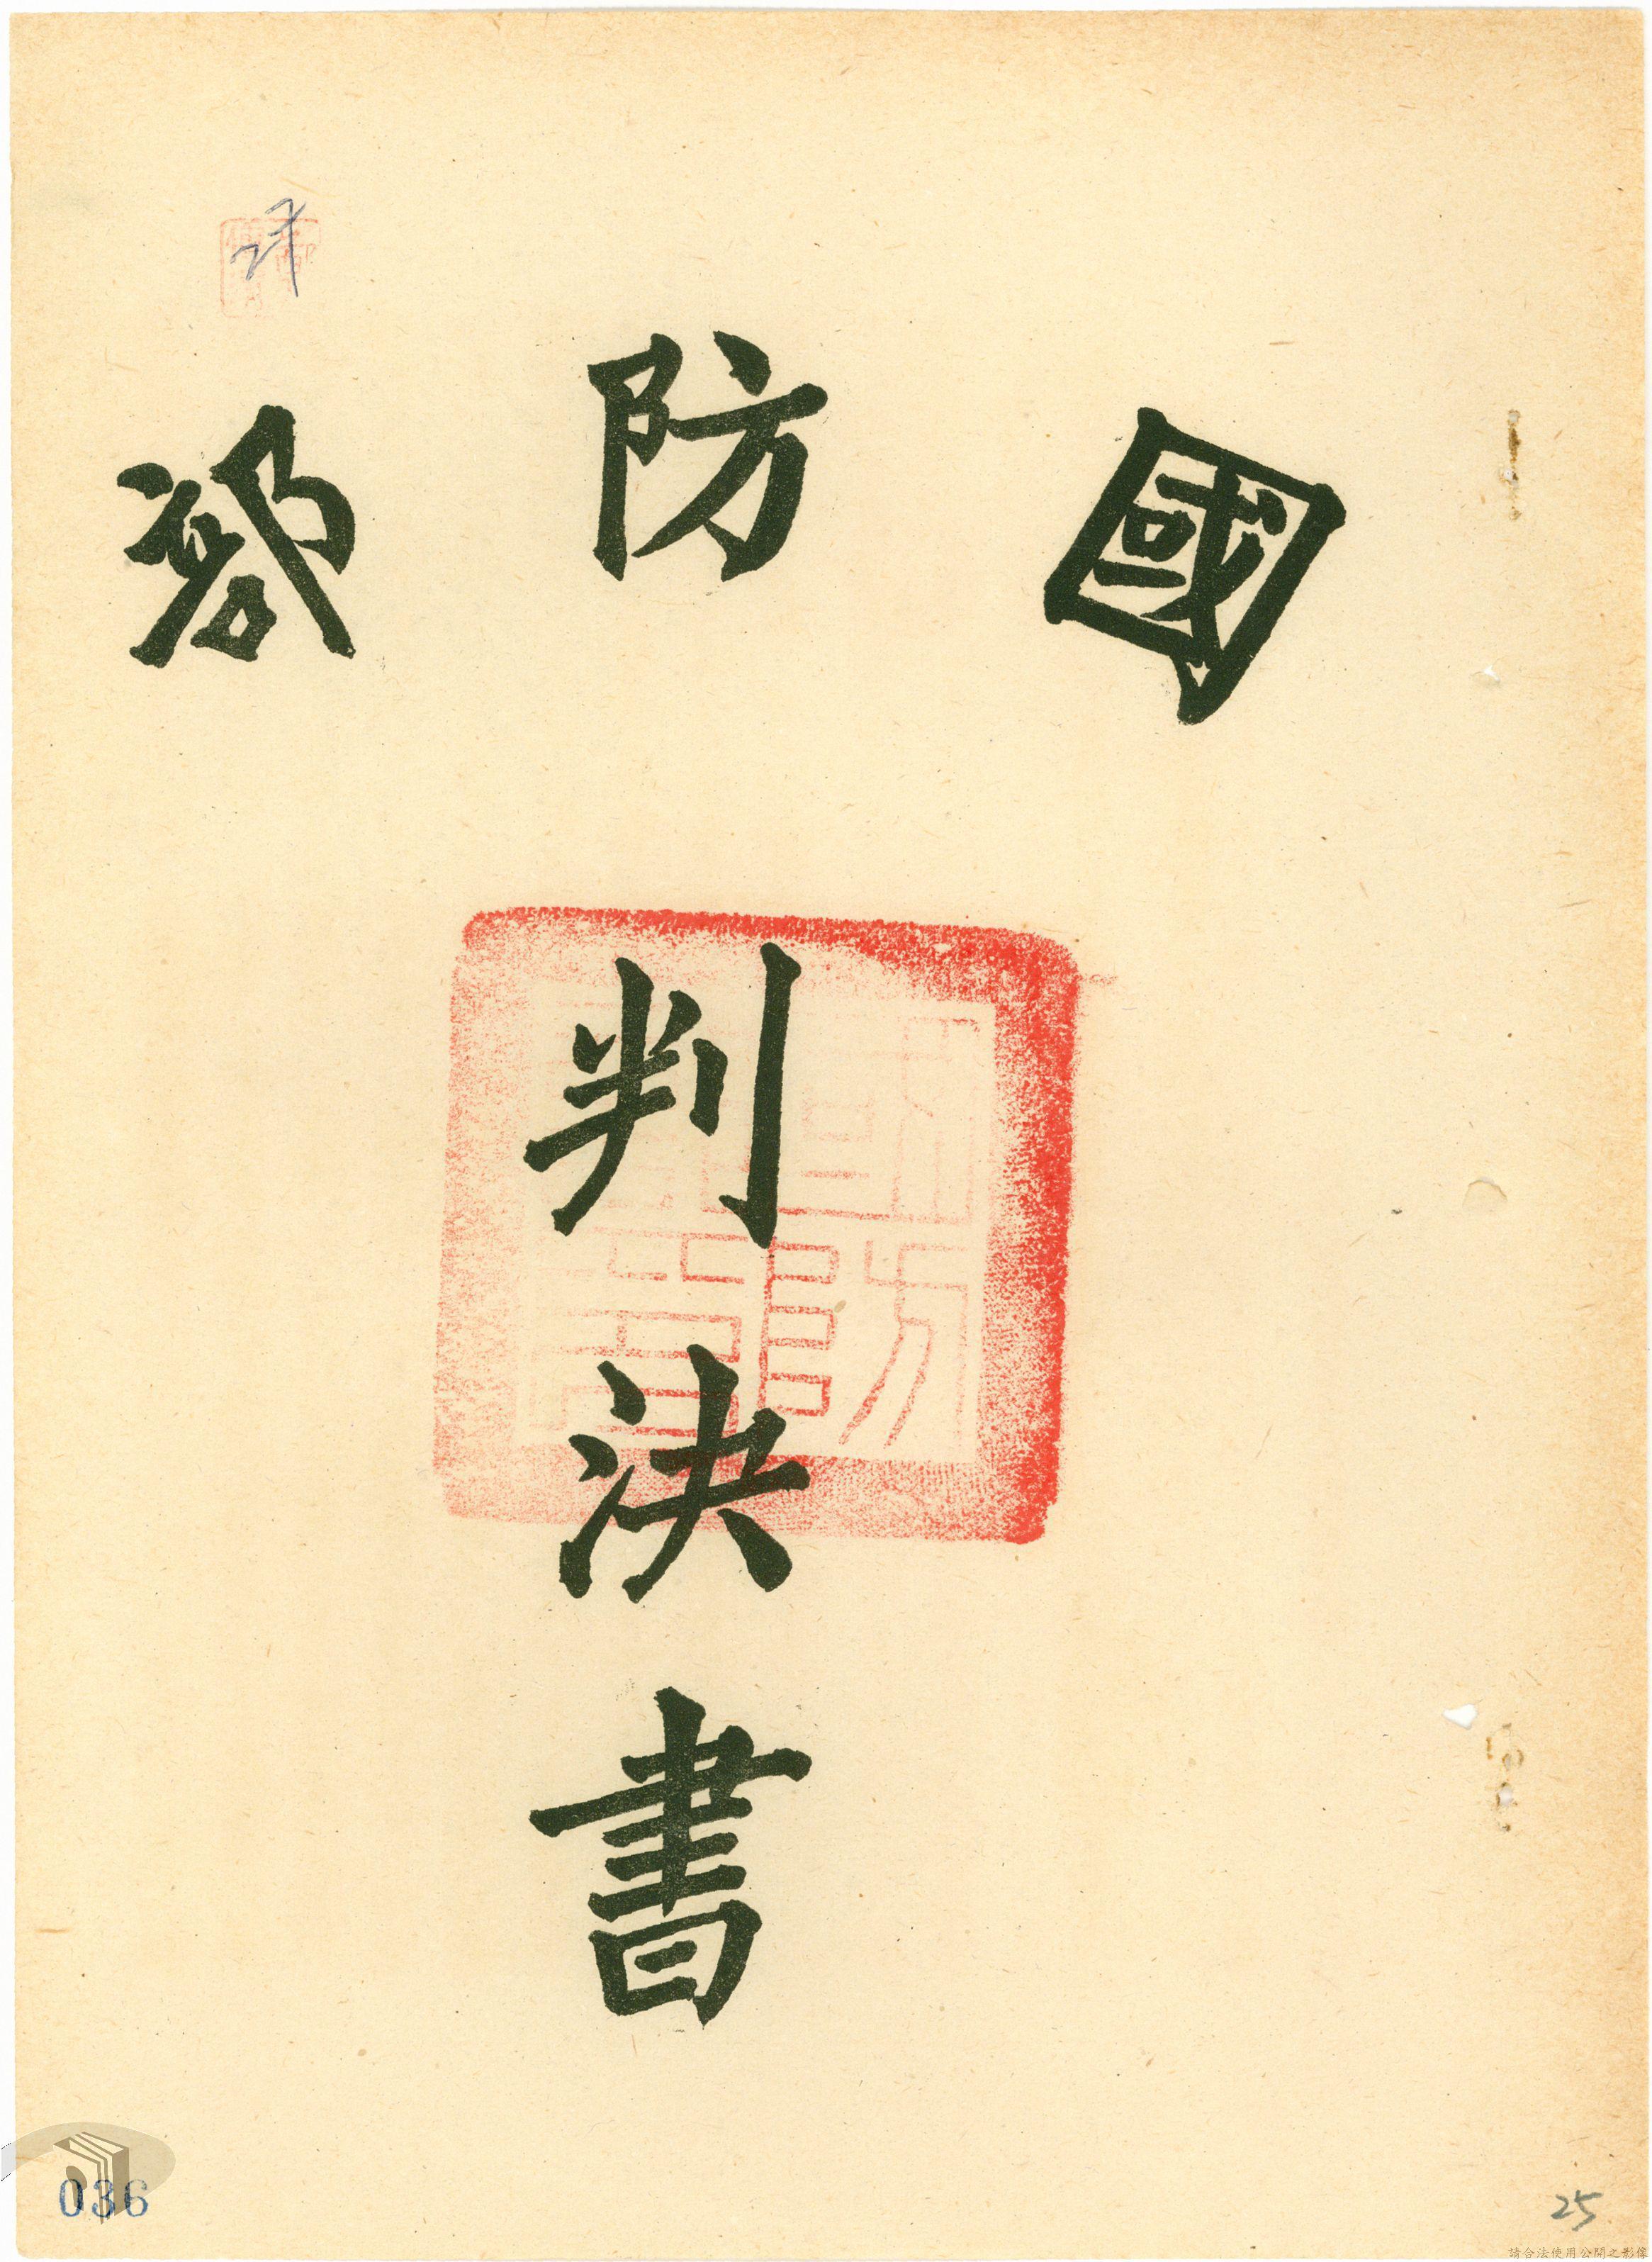 國防部
判決書
036
25
請合法使用公開之影像